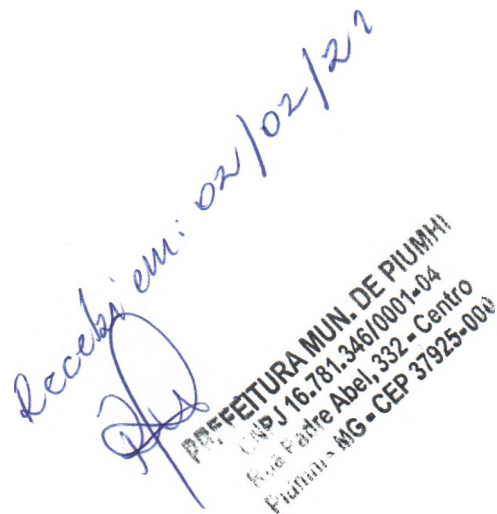 Recebi em: 02/02/21
PREFEITURA MUN. DE PIUMHI
CNPJ 16.781.346/0001-04
Rua Padre Abel, 332 - Centro
Piumhi - MG - CEP 37925-000